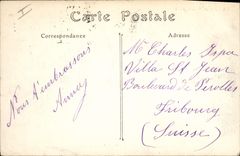 I
Carte Postale
Correspondance
Adresse
Nous t'embrassons
Annay
Mr Charles
Villa St Jean
Boulevard de Pérolles
Fribourg
(Suisse)